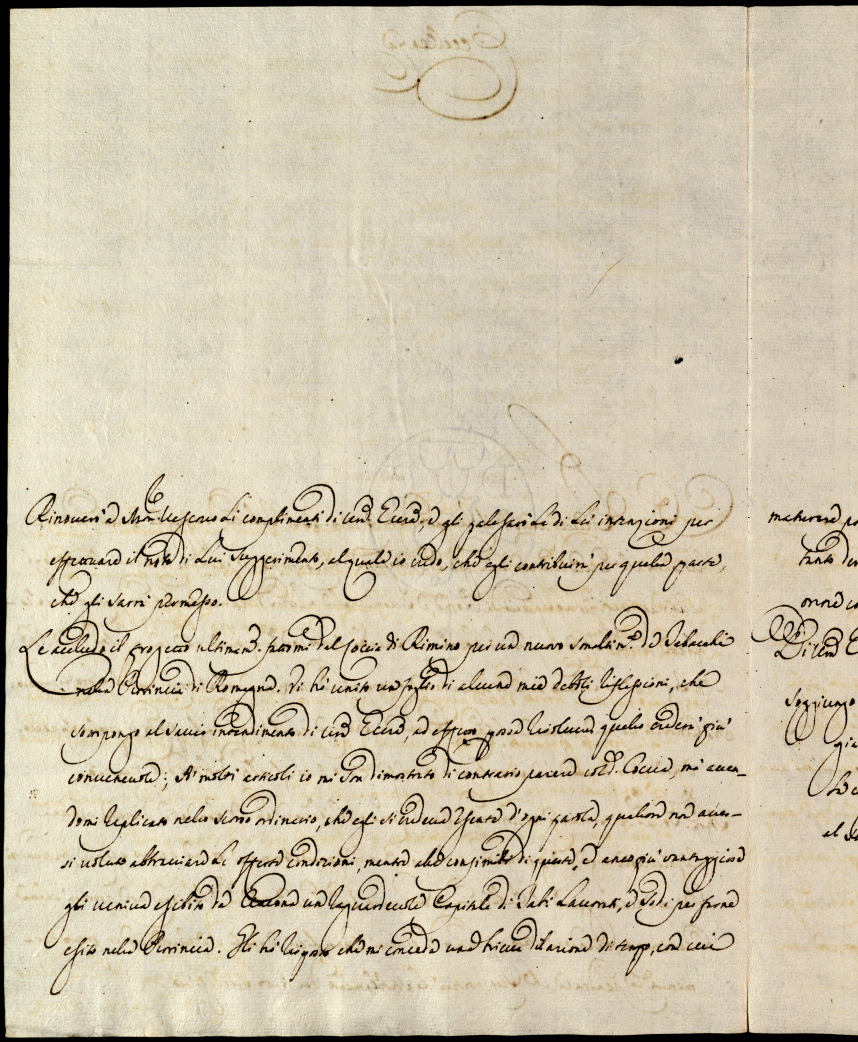 Rinoverò a Mon.r Vescovo li complimenti di Vra Eccza, e gli paleserò le di Lei intenzioni per
effettuare il noto di Lui suggerimento, al quale io credo, che egli contribuirà per quella parte,
che gli sarà permesso.
Le accludo il progetto ultimam. fattomi dal Coccia di Rimino per un nuovo smaltim.to de Tabacchi
nella Provincia di Romagna. Vi hò unito un foglio di alcune mie deboli riflessioni, che
sottopongo al savio intendimento di Vra Eccza, ad effetto possa risolvere quello crederà più
convenevole; A' molti articoli io mi son dimostrato di contrario parere col d. Coccia, mà aven-
domi replicato nello scorso ordinario, che egli si credeva esente d'ogni parola, qualora non aves-
si voluto abbracciare le offerte condizioni, mentre alle consimili di queste, e anco più vantaggiose
gli veniva esibito da Ancona un ragguardevole Capitale di Tabi Lavorati, e Sodi per farne
esito nella Provincia. Gli hò risposto che mi conceda una breve dilazione di tempo, con cui
maturare
tanto
Di Vra E
soggiungo
al